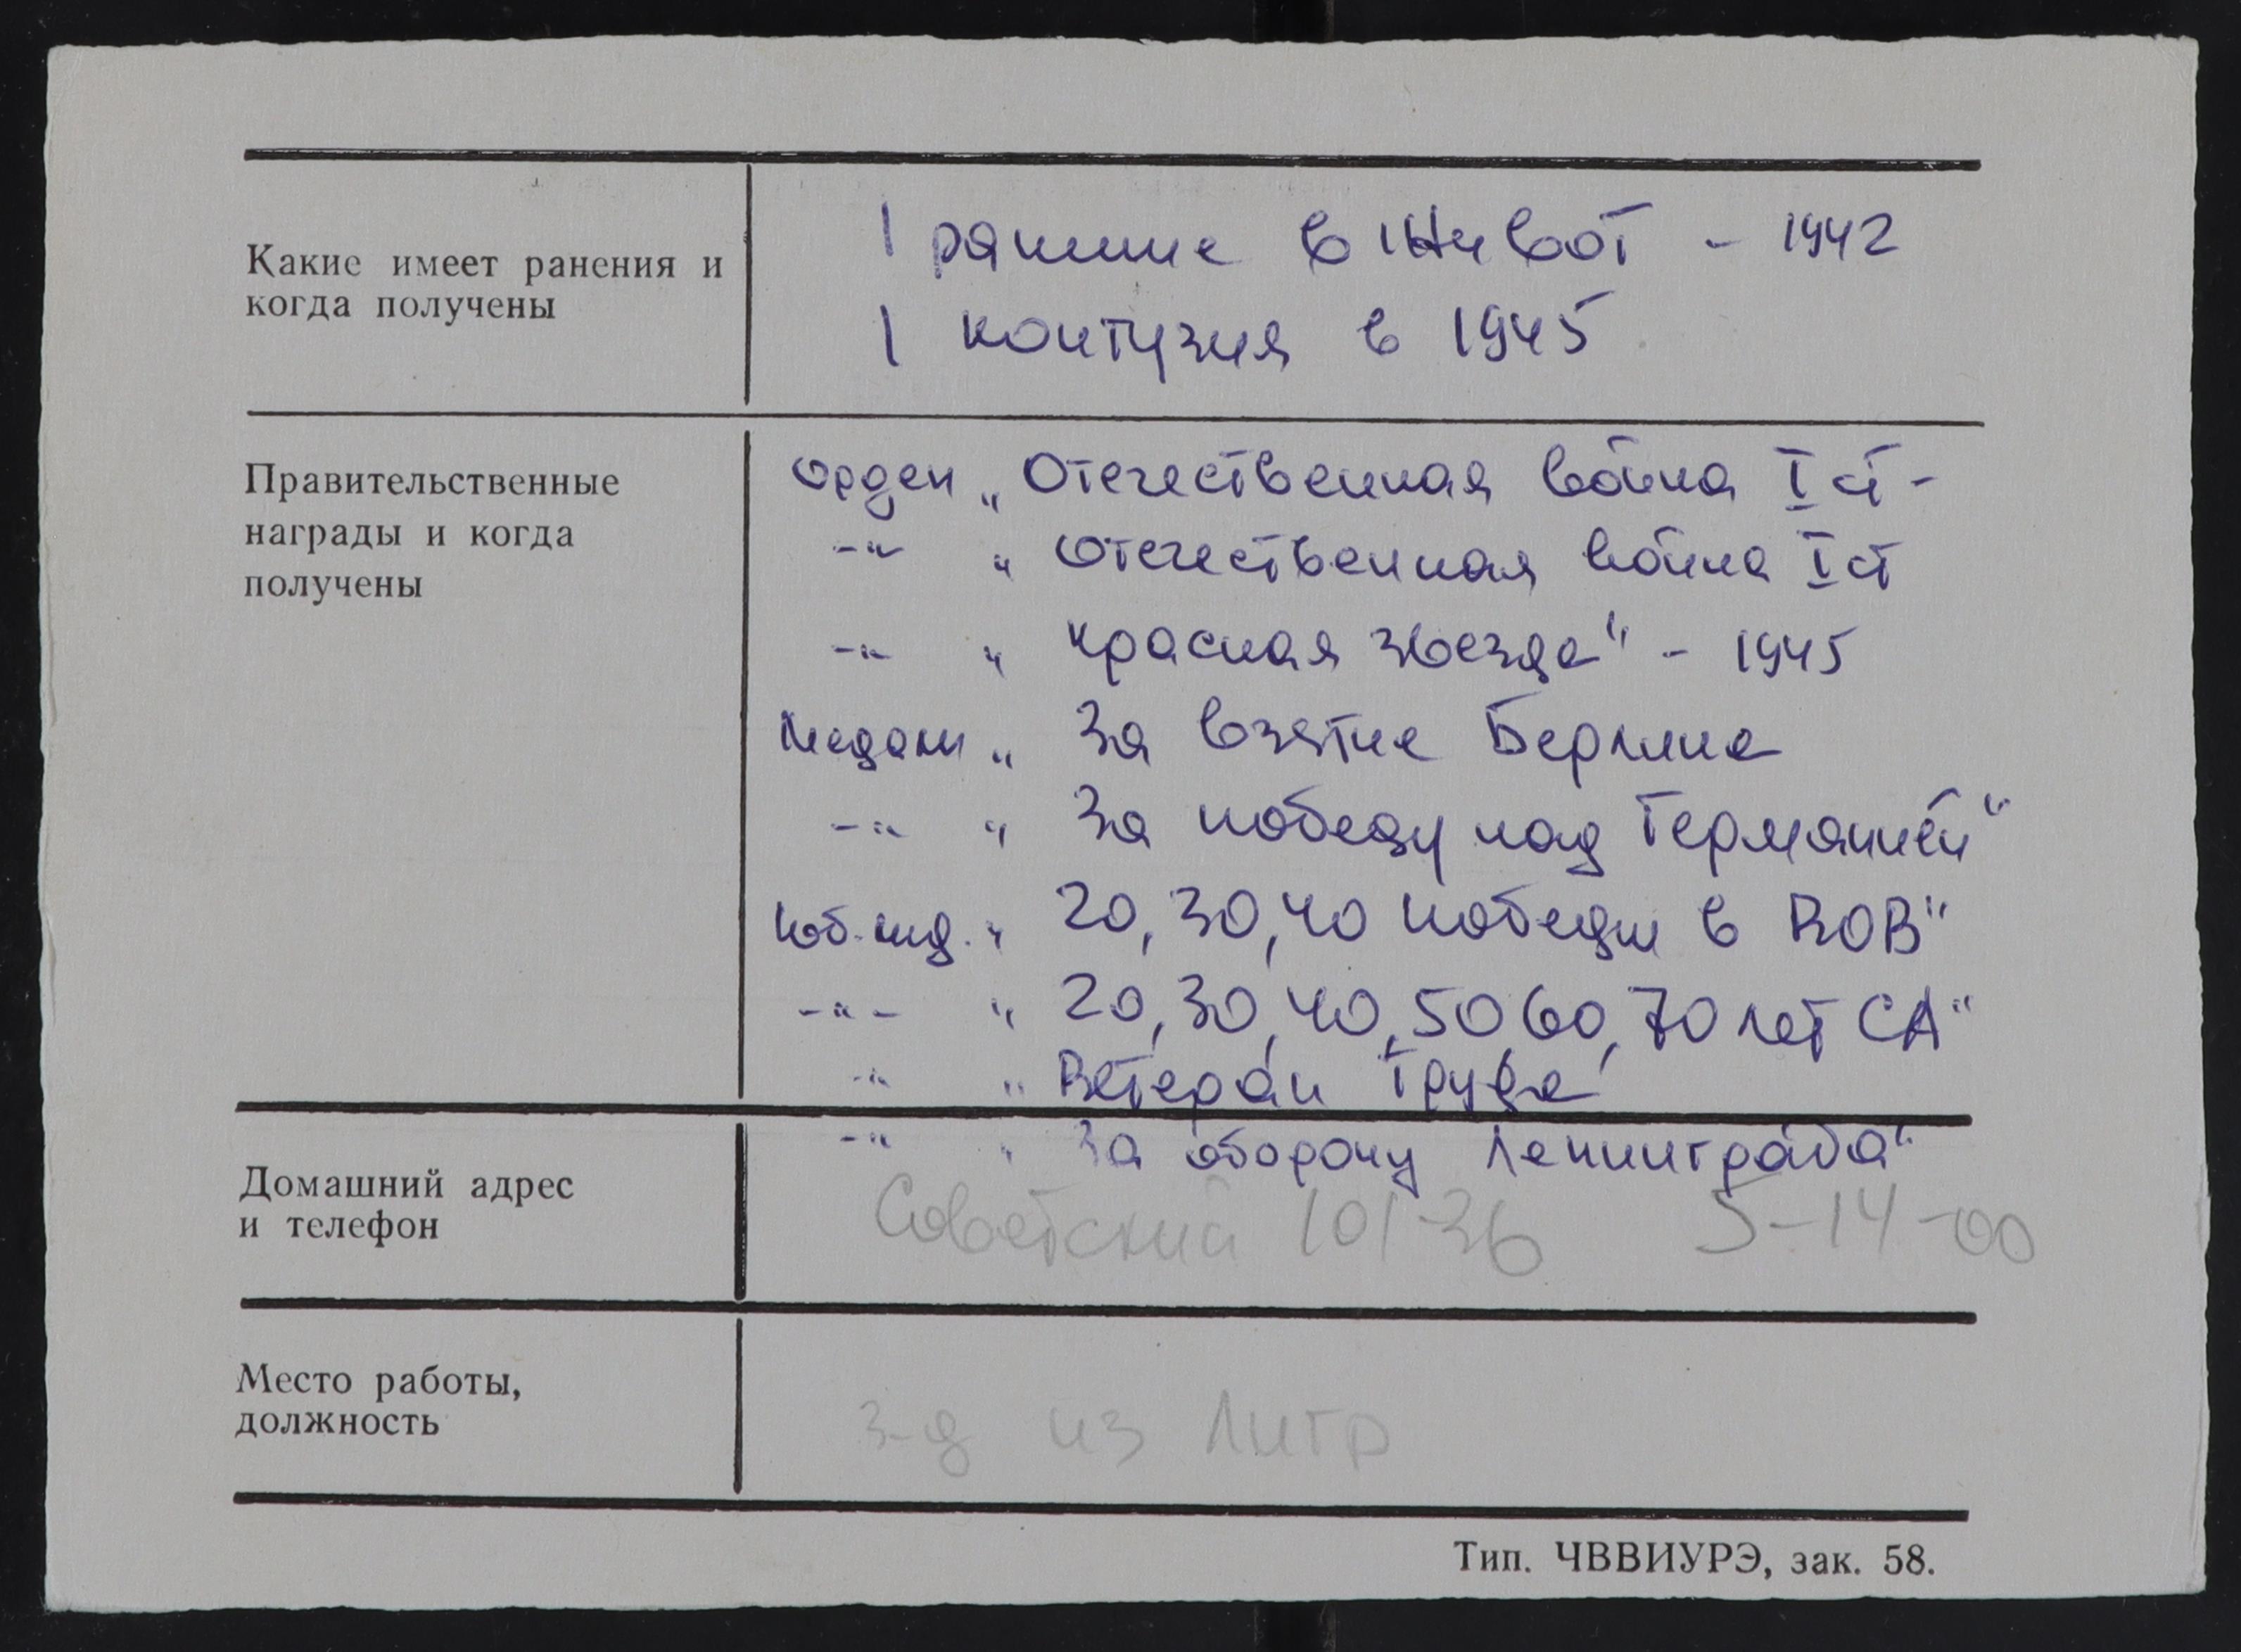 Какие имеет ранения и
когда получены
1 ранение в живот - 1942
1 контузия в 1945
Правительственные
награды и когда
получены
Орден „Отечественная война I ст -
-"- " Отечественная война I ст
-"- " Красная звезда" - 1945
Медали „ За взятие Берлина
-"- " За победу над Германией"
Юб. мед. " 20, 30, 40 победы в ВОВ"
-"- " 20, 30, 40, 50, 60, 70 лет СА"
-"- " Ветеран Труда
-"- " За оборону Ленинграда"
Домашний адрес
и телефон
Советский 101-36 5-14-00
Место работы,
должность
з-д из Литр
Тип. ЧВВИУРЭ, зак. 58.